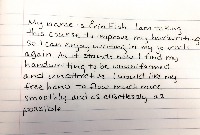 My name is Erin Fish. I am taking
this course to improve my handwriting
so I can enjoy writing in my journals
again. As it stands now I find my
handwriting to be unsustained
and unattractive. I would like my
free hand to flow much more
smoothly and as effortlessly as
possible.